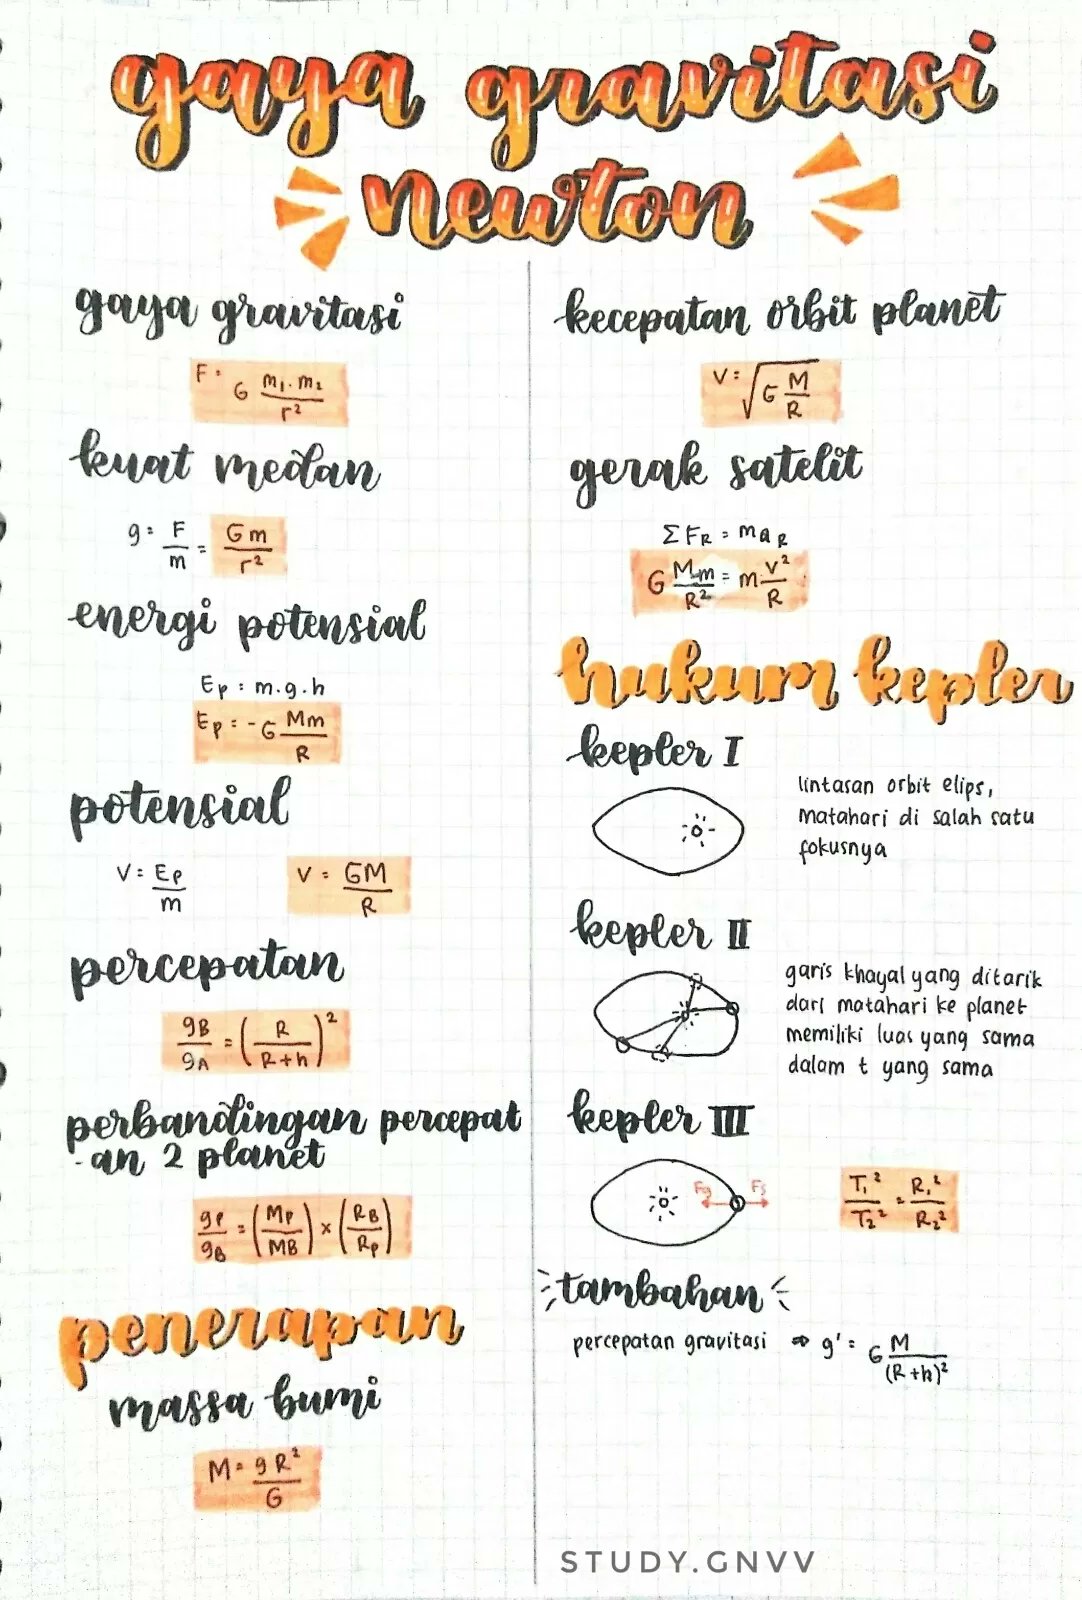 gaya gravitasi
newton
gaya gravitasi
F = G m₁.m₂/r²
kuat medan
g = F/m = Gm/r²
energi potensial
Ep = m.g.h
Ep = -G Mm/R
potensial
V = Ep/m V = GM/R
percepatan
gB/gA = (R/R+h)²
perbandingan percepat
-an 2 planet
gP/gB = (Mp/MB) × (RB/Rp)
penerapan
massa bumi
M = gR²/G
kecepatan orbit planet
V = √(G M/R)
gerak satelit
ΣFR = maR
G Mm/R² = m V²/R
hukum kepler
kepler I
lintasan orbit elips,
matahari di salah satu
fokusnya
kepler II
garis khayal yang ditarik
dari matahari ke planet
memiliki luas yang sama
dalam t yang sama
kepler III
Fg Fs
T₁²/T₂² = R₁²/R₂²
tambahan
percepatan gravitasi ⇒ g' = G M/(R+h)²
STUDY.GNVV